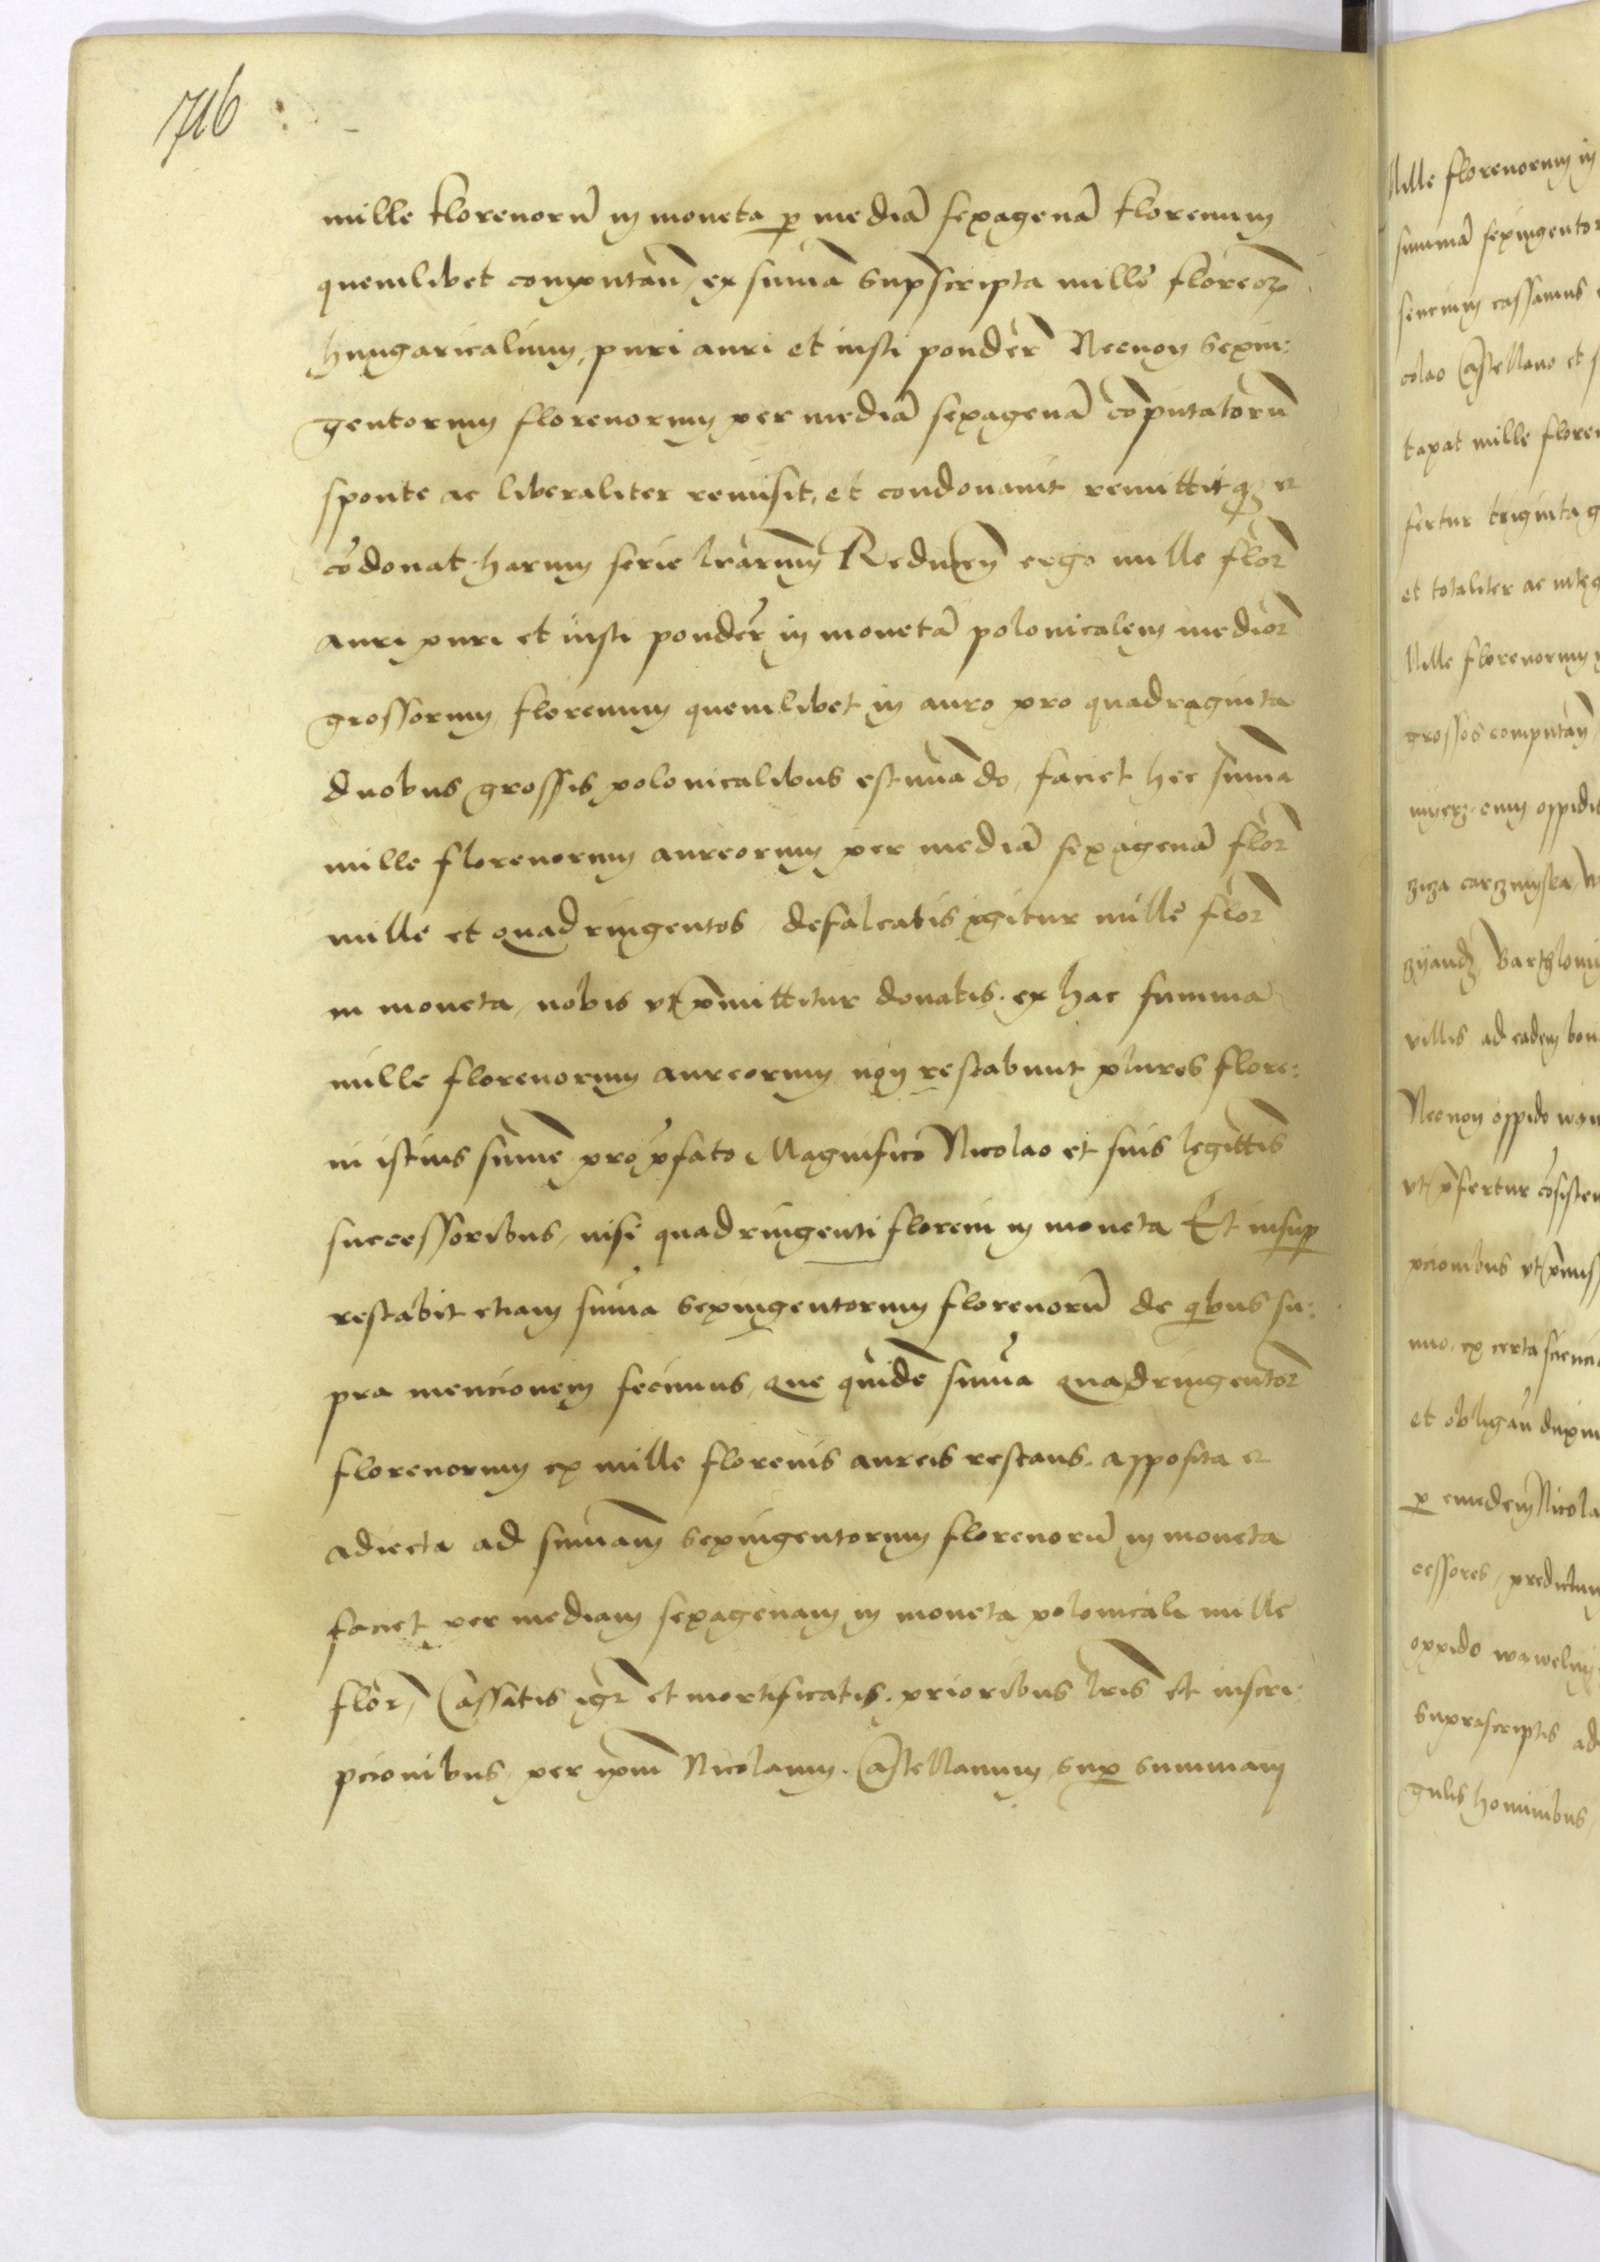 716
mille florenorū in moneta p mediā sexagenā florenum
quemlibet computan̄, ex sūma suprascripta mille floreoꝝ
hungaricalium, puri auri et iusti ponder̄ Necnon sexin:
gentorum florenorum per mediā sexagenā cōputatorū
sponte ac liberaliter remisit, et condonauit remittitqꝫ et
cōdonat harum serie lrarum̄ ergo mille flor̄
auri puri et iusti ponder̄ in monetā polonicalem medior̄
grossorum, florenum quemlibet in auro pro quadraginta
duobus grossis polonicalibus estimādo, faciet hec sūma
mille florenorum aureorum per mediā sexagenā flor̄
mille et quadringentos, defalcatis igitur mille flor̄
in moneta, nobis vt pmittitur donatis, ex hac summa
mille florenorum aureorum non restabunt plures flore:
ni istius sūme pro pfato Magnifico Nicolao et suis legittis̄
successoribus, nisi quadringenti floreni in moneta Et insup
restabit etiam sūma sexingentorum florenorū de qibus su:
pra mencionem fecimus, que quidē sūma quadringentor̄
florenorum ex mille florenis aureis restans, apposita et
adiecta ad sūmam sexingentorum florenorū in moneta
faciet per mediam sexagenam in moneta polonicali mille
flor̄, Cassatis igr̄ et mortificatis, prioribus lris̄ et inscri:
pcionibus, per ipm̄ Nicolaum Castellanum, sup summam
Mille florenorum in
summā sexingentor
cassamus
colao Castellano et s
taxat mille floren
fertur triginta g
et totaliter ac integ
Mille florenorum
grossos computan̄
oppidis
villis ad eadem bon
Necnon oppido
vt pfertur cōsisten
pcionibus vt pmiss
nuo, ex certa sciencia
et obligan̄ duxim
p eundem Nicola
cessores, predictum
oppido
suprascriptis ad
gulis hominibus,